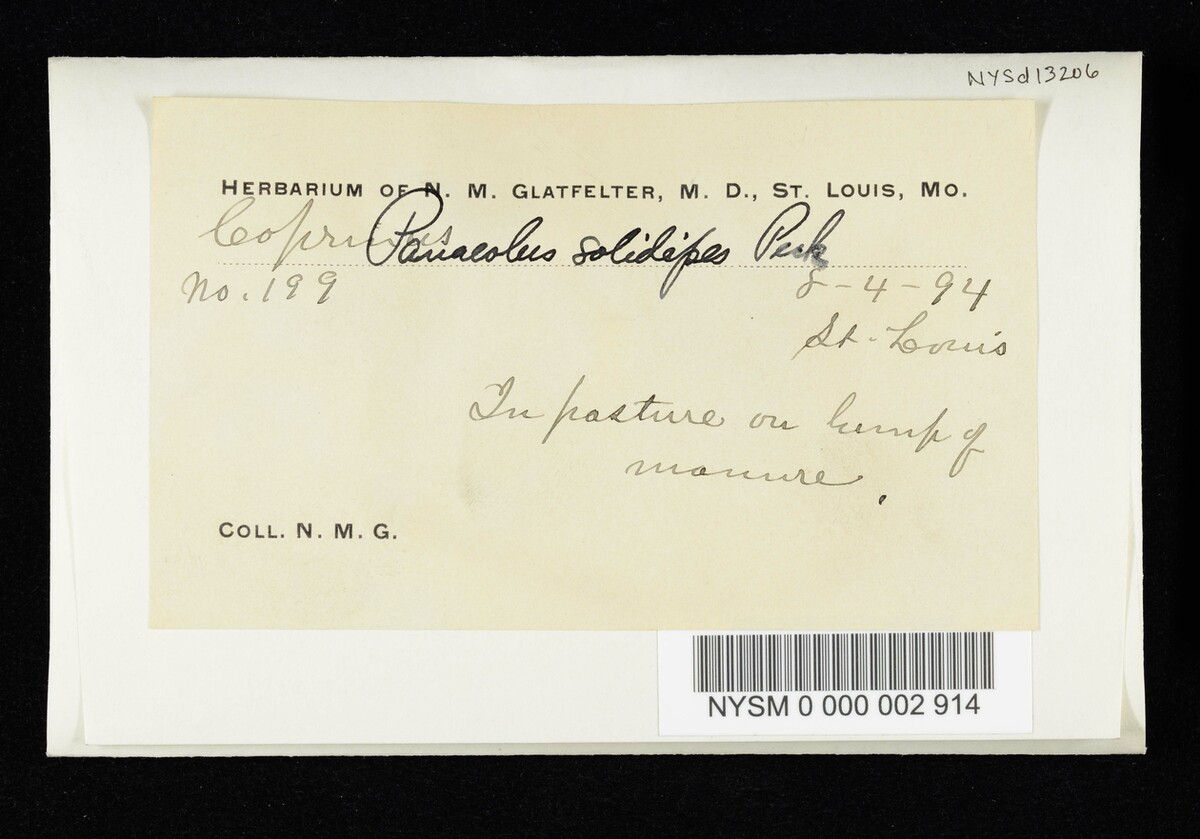 NYSd13206
HERBARIUM OF N. M. GLATFELTER, M. D., ST. LOUIS, MO.
Coprinus Panaeolus solidipes Peck
No. 199 8-4-94
St. Louis
In pasture on lump of
manure.
COLL. N. M. G.
NYSM 0 000 002 914